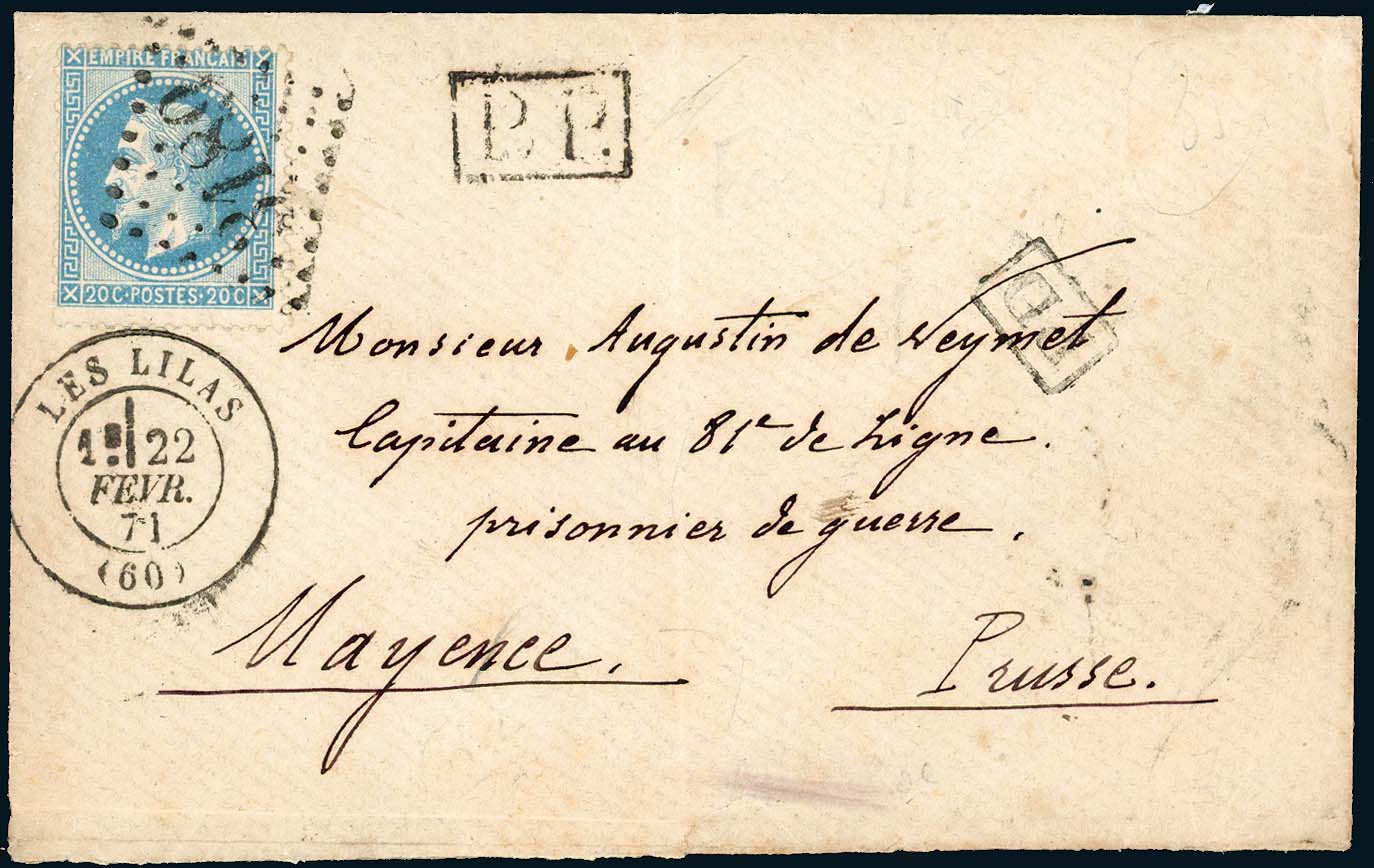 EMPIRE FRANÇAIS
20 C · POSTES · 20 C
P.P.
LES LILAS
1E 22
FEVR.
71
(60)
Monsieur Augustin de Neymet
Capitaine au 81e de Ligne.
prisonnier de guerre.
Mayence.
Prusse.